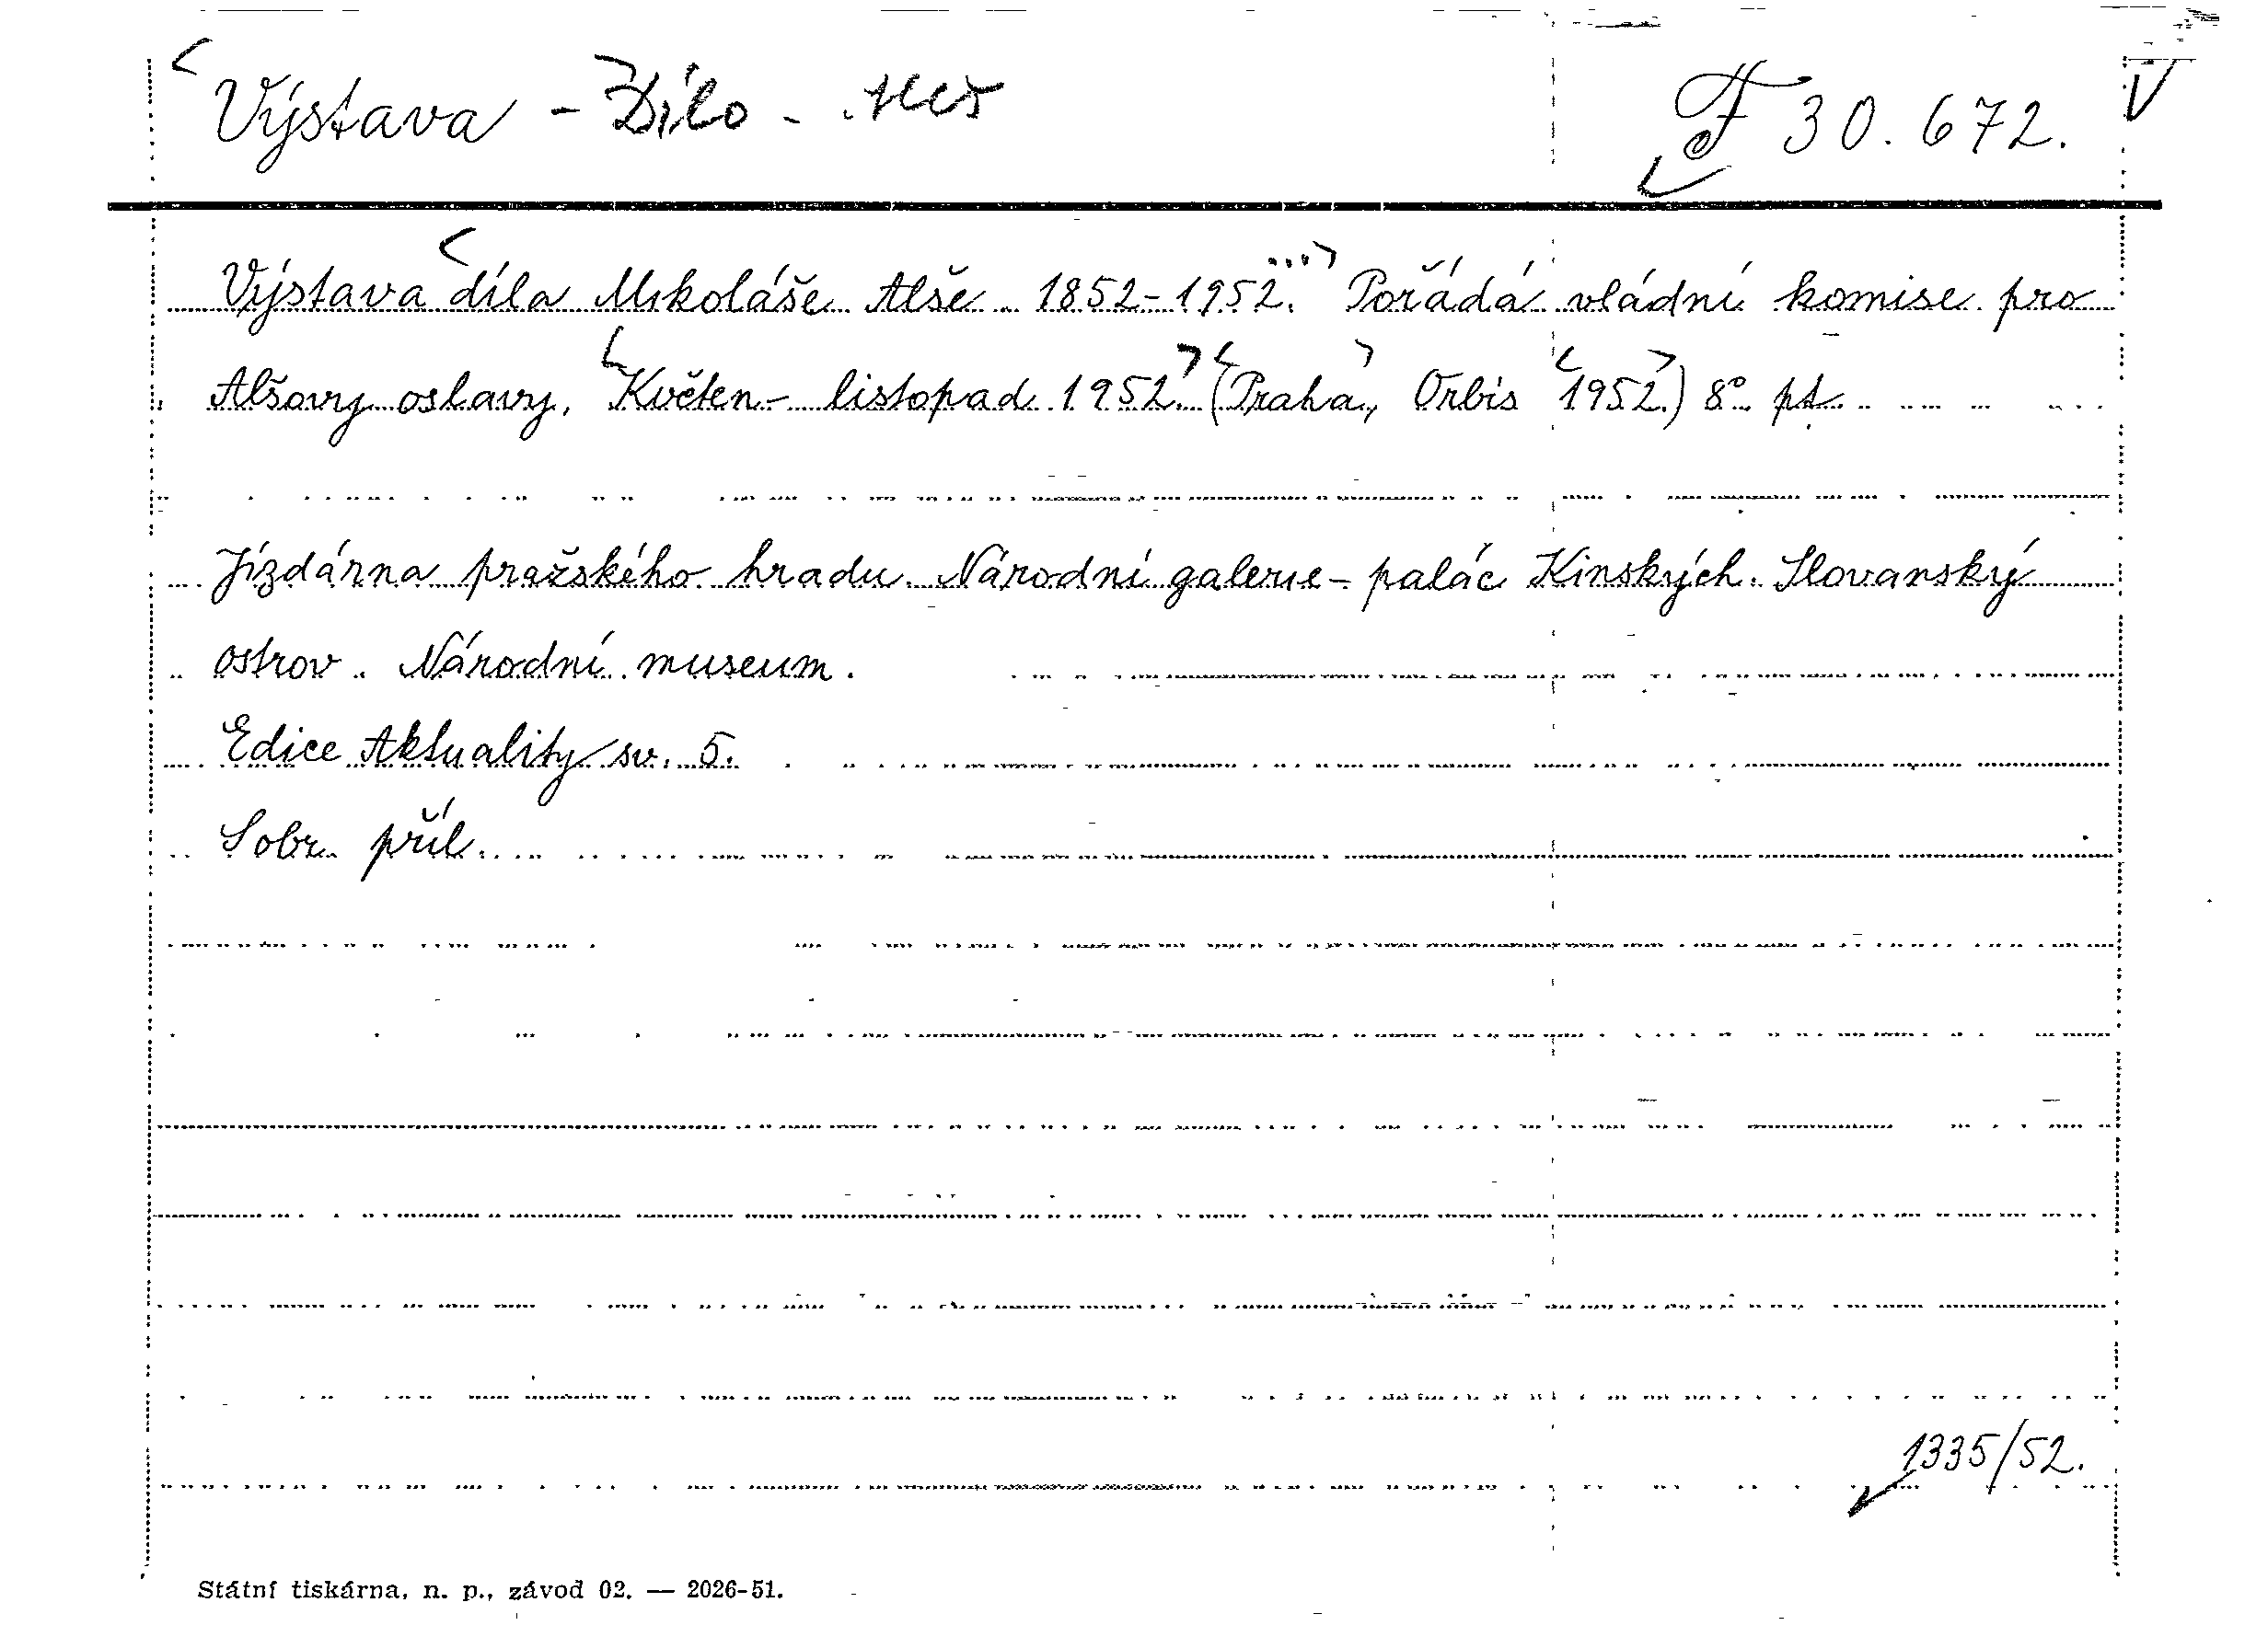 Výstava - Dílo - Aleš F 30.672. V
Výstava díla Mikoláše Alše 1852-1952. Pořádá vládní komise pro
Alšovy oslavy, Květen - listopad 1952. (Praha, Orbis 1952.) 8° pt.
Jízdárna pražského hradu. Národní galerie - palác Kinských. Slovanský
ostrov. Národní museum.
Edice Aktuality sv. 5.
S obr. příl.
1335/52.
Státní tiskárna, n. p., závod 02. — 2026-51.